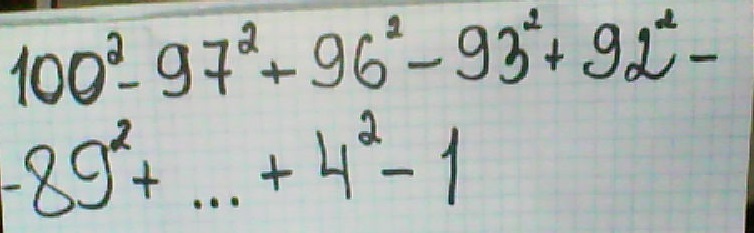 100² - 97² + 96² - 93² + 92² -
- 89² + ... + 4² - 1